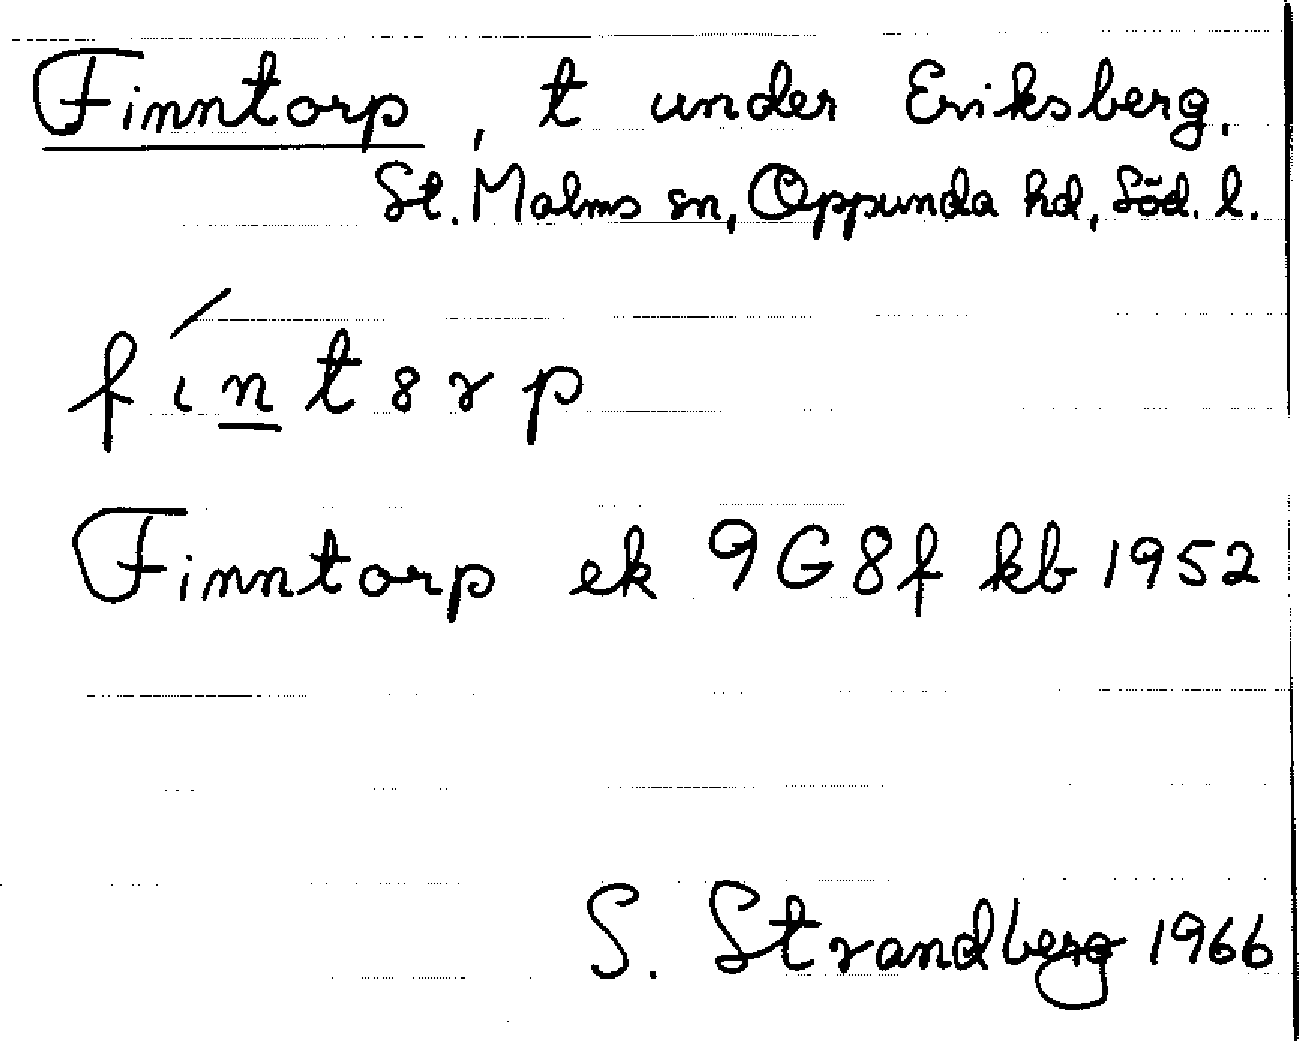 Finntorp, t under Eriksberg,
St. Malms sn, Oppunda hd, Söd. l.
fı́n̲tȣrp
Finntorp ek 9G8f kb 1952
S. Strandberg 1966